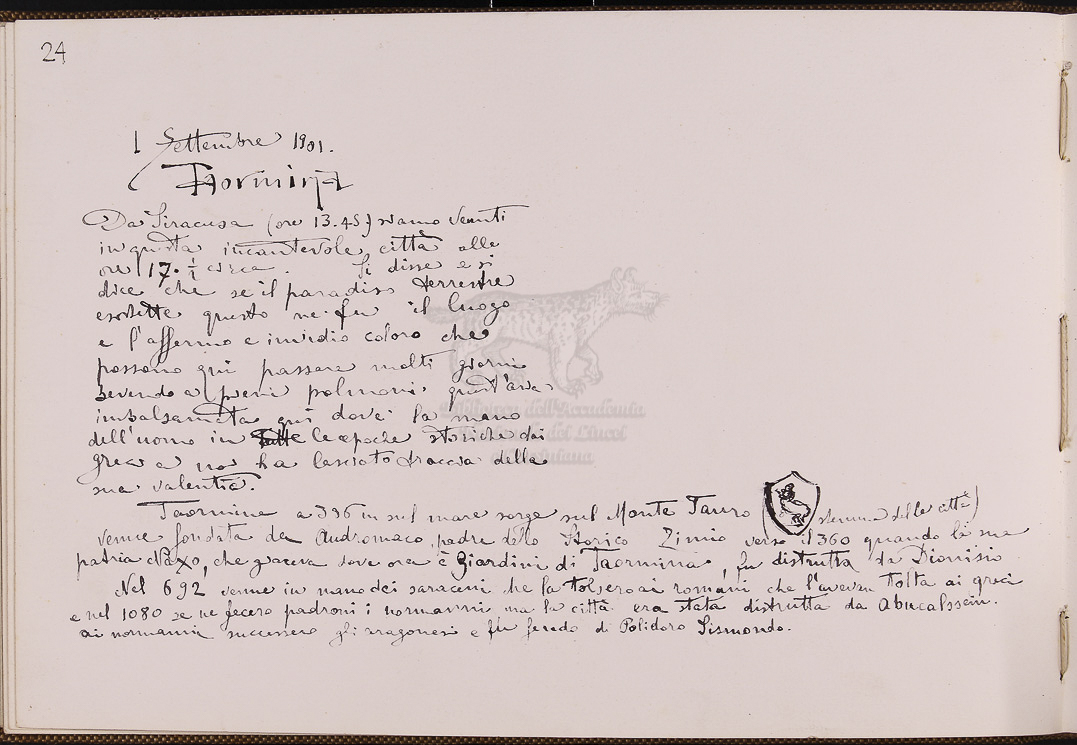 24
1 Settembre 1901.
Taormina
Da Siracusa (ore 13.45) siamo venuti
in questa incantevole città alle
ore 17 · 1/2 circa. Si disse e si
dice che se il paradiso terrestre
esistette questo ne fu il luogo
e l'affermo e invidio coloro che
possono qui passare molti giorni
bevendo a pieni polmoni quest'aria
imbalsamata qui dove la mano
dell'uomo in tutte le epoche storiche dai
greci a noi ha lasciato traccia della
sua valentia.
Taormina a 396 m sul mare sorge sul Monte Tauro (stemma della città)
venne fondata da Andromaco, padre dello Storico Zimio verso il 360 quando la sua
patria Naxo, che giaceva dove ora è Giardini di Taormina, fu distrutta da Dionisio
Nel 692 venne in mano dei saraceni che la tolsero ai romani che l'aveva tolta ai greci
e nel 1080 se ne fecero padroni i normanni ma la città era stata distrutta da Abucalssein.
ai normanni successero gli aragonesi e fu feudo di Polidoro Sismondo.
Biblioteca dell'Accademia
Nazionale dei Lincei
e Corsiniana